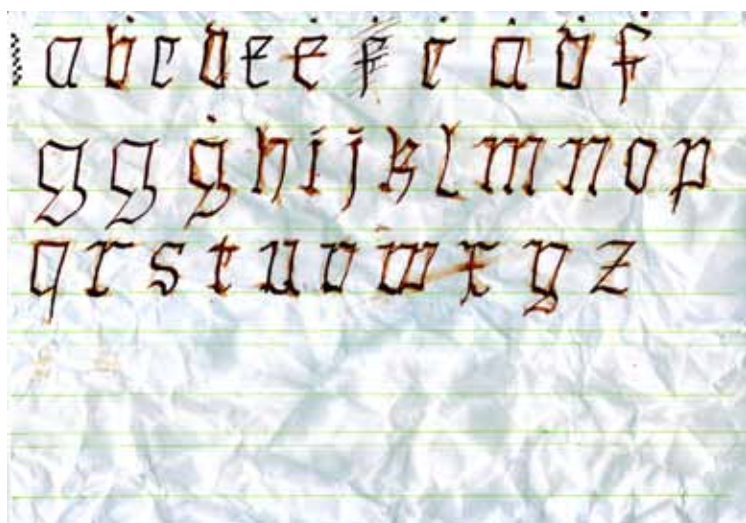 a b c d e e f c a d f
g g g h i j k l m n o p
q r s t u v w x y z